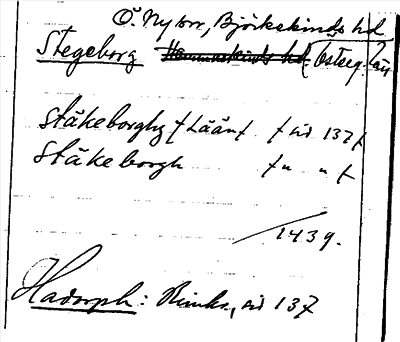 Ö. Ny sn, Björkekinds hd
Stegeborg Hammarkinds hd, Österg. län
Stäkeborghz (Lään) (sid 137)
Stäkeborgh (" ")
1439.
Hadorph: Rimkr., sid 137